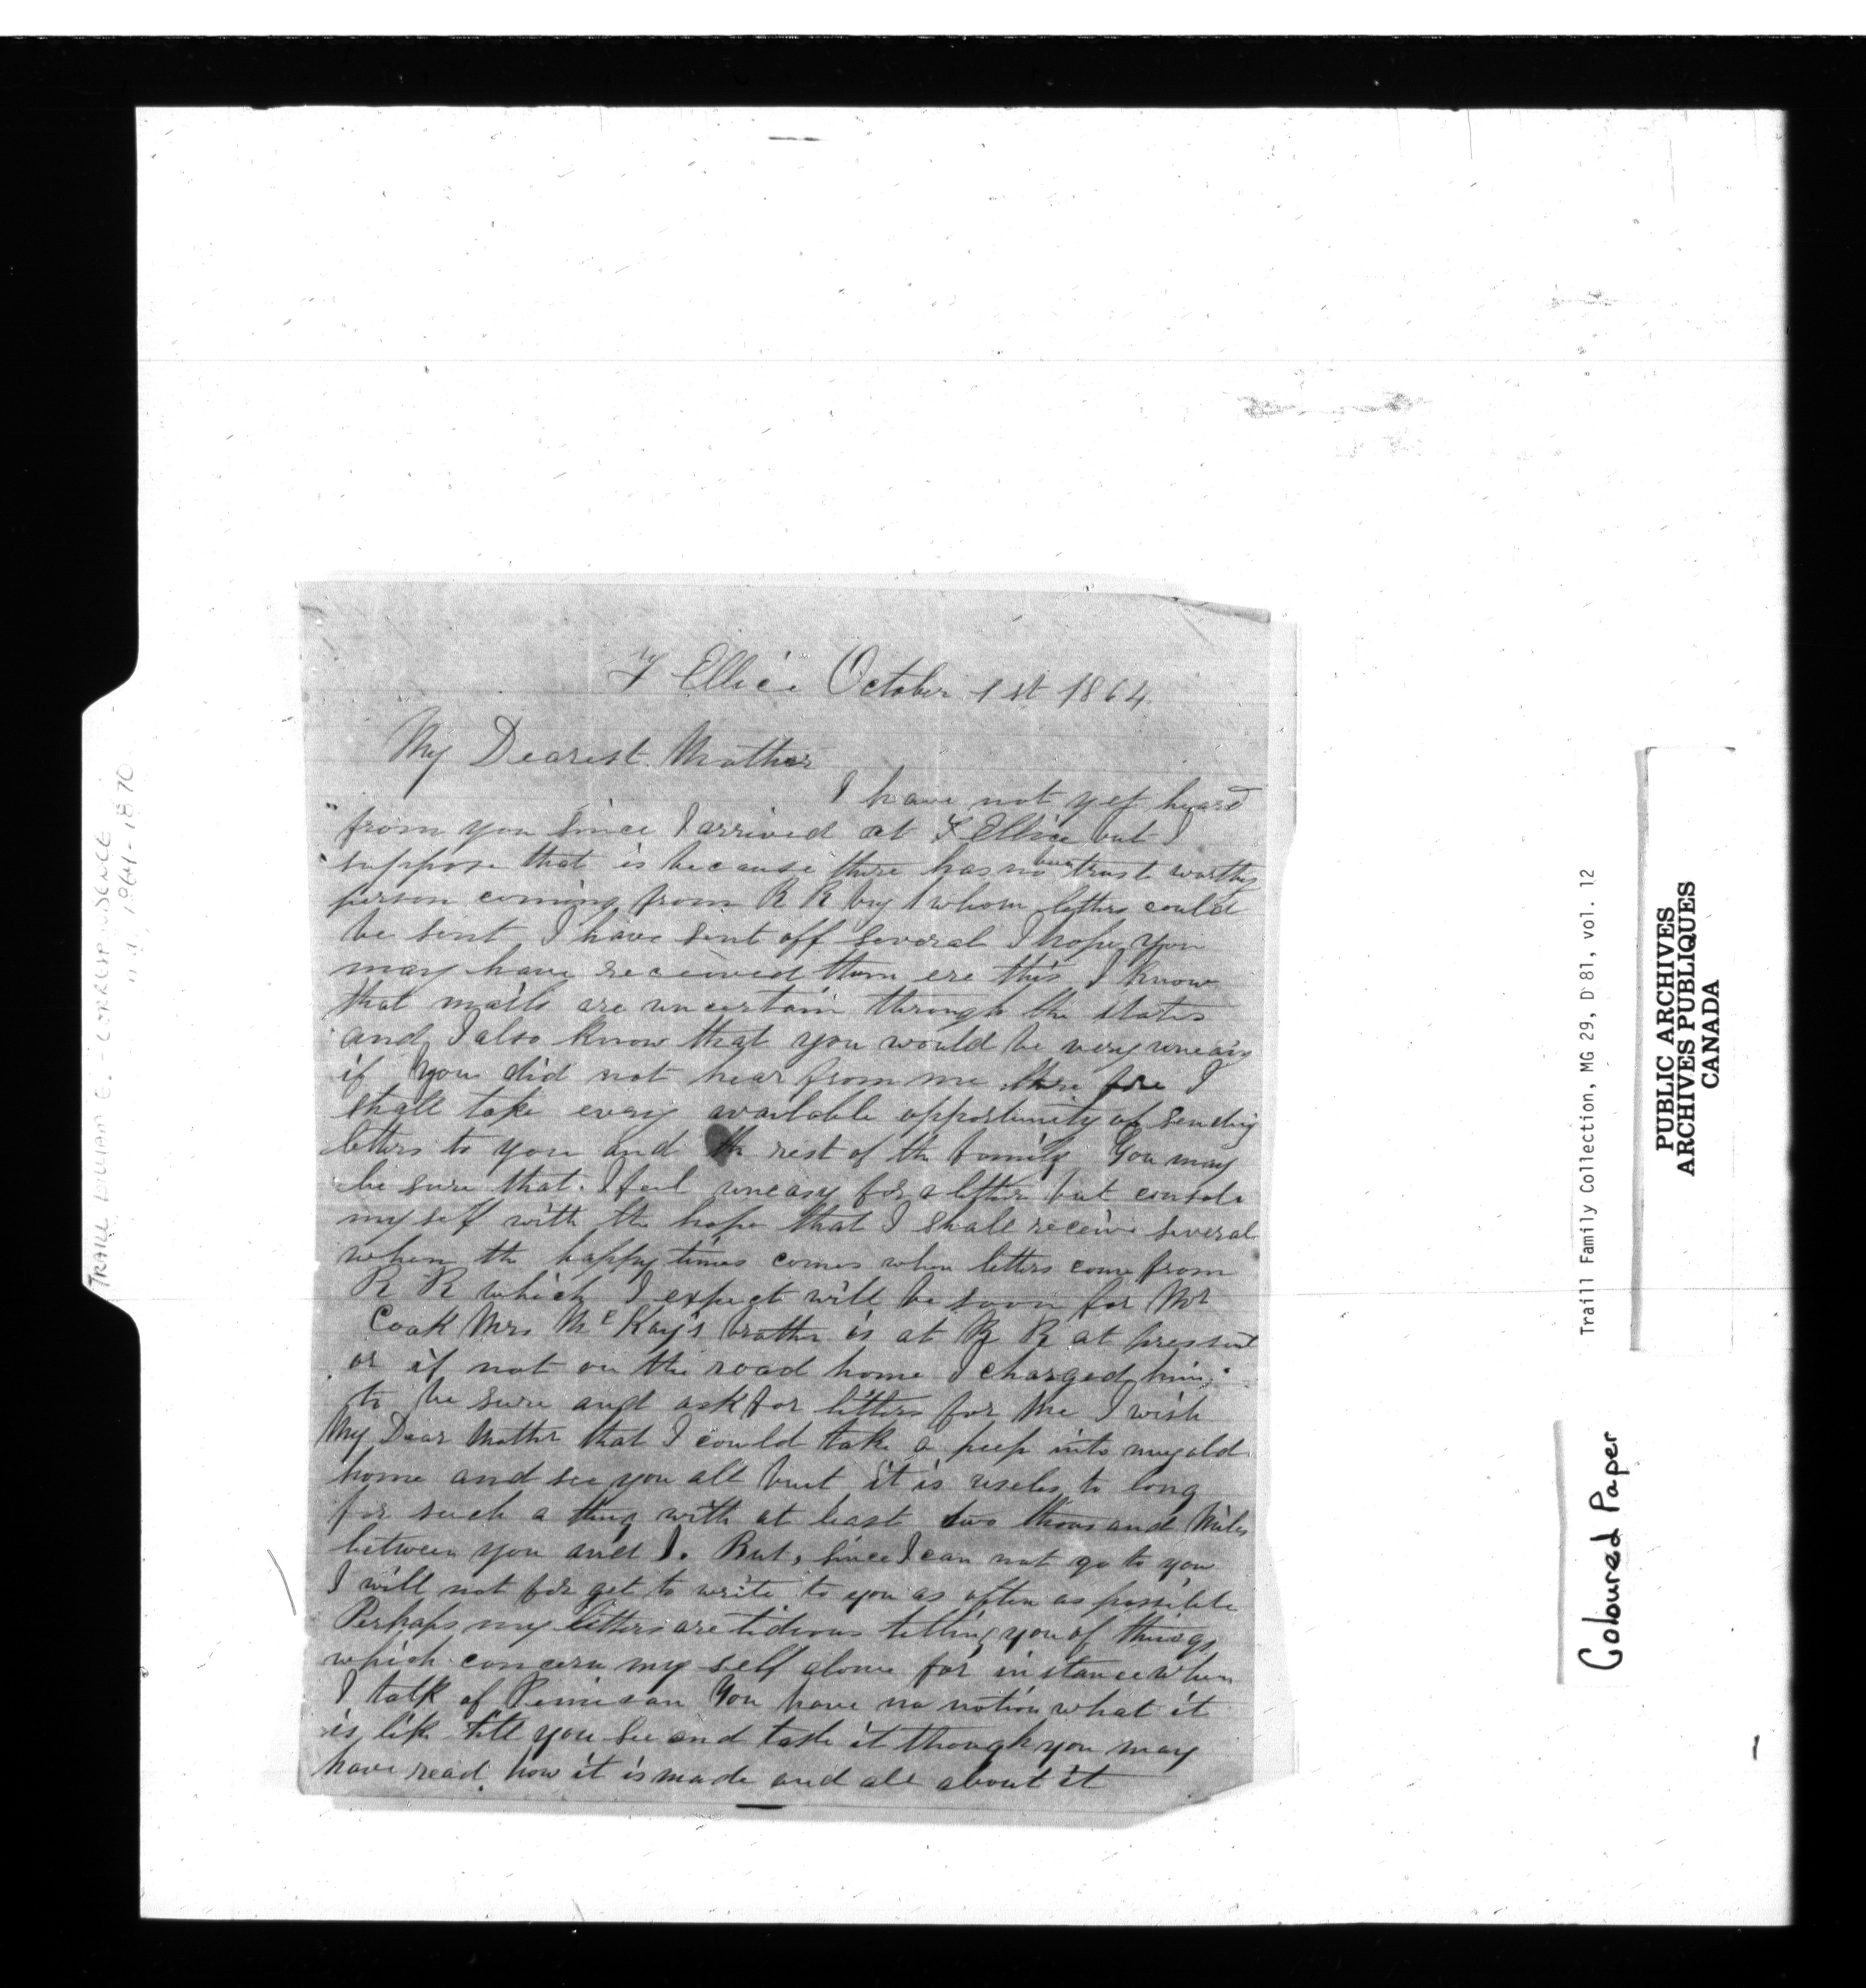 F Ellice October 1st 1864
My Dearest Mother
I have not yet heard
from you since I arrived at F Ellice but I
suppose that is because there has no been trust worthy
person coming from R R by whom letters could
be sent I have sent off several I hope you
may have received them ere this I know
that mails are uncertain through the states
and I also know that you would be very uneasy
if you did not hear from me there fore I
shall take every available opportunity of sending
letters to you and the rest of the family You may
be sure that I feel uneasy for a letter but consola
my self with the hope that I shall receive several
when the happy times comes when letters come from
R R which I expect will be soon for Mr
Cook Mrs McKay's brother is at R R at present
or if not on the road home I charged him
to be sure and ask for letters for me I wish
My Dear Mother that I could take a peep into my old
home and see you all but it is useles to long
for such a thing with at least two thousand Miles
between you and I. But, since I can not go to you
I will not for get to write to you as often as possible
Perhaps my letters are tidious telling you of things
which concern my self alone for instance when
I talk of Pemican You have no notion what it
is like till you see and taste it though you may
have read how it is made and all about it
TRAILL WILLIAM E. - CORRESPONDENCE
n.d., 1864-1870
Traill Family Collection, MG 29, D 81, vol. 12
PUBLIC ARCHIVES
ARCHIVES PUBLIQUES
CANADA
Coloured Paper